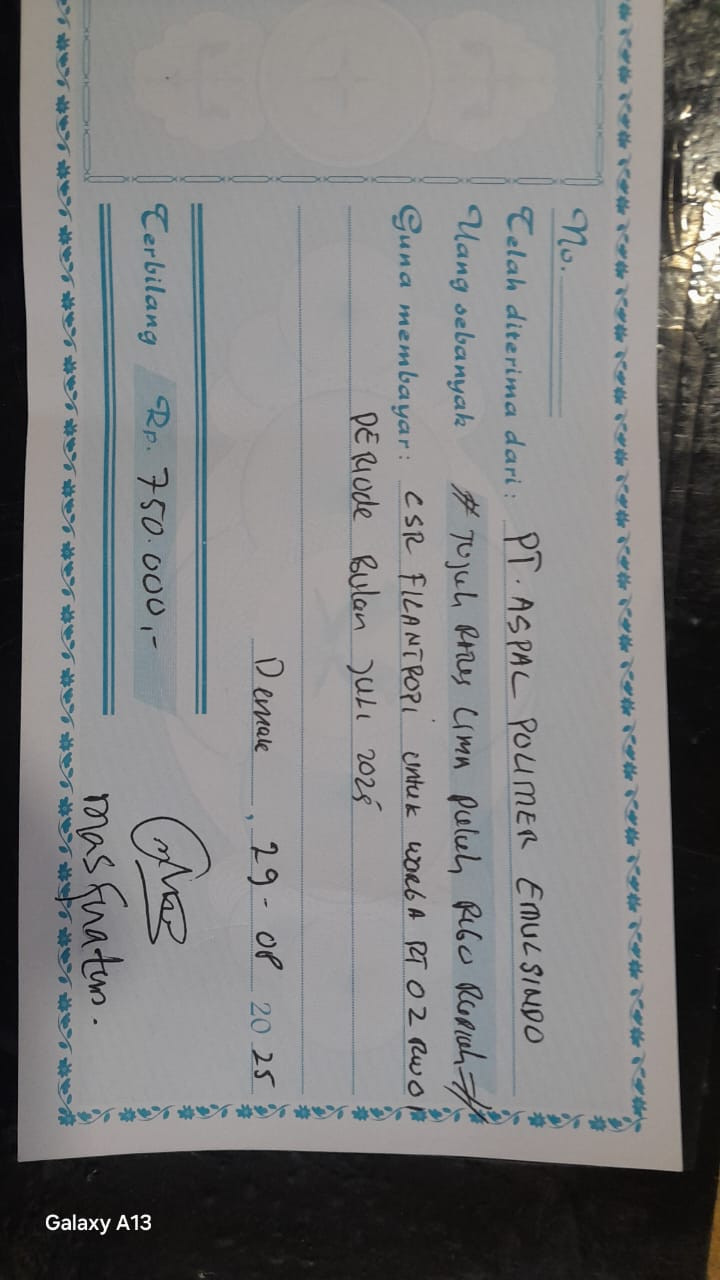 No.
Telah diterima dari : PT. ASPAL POLIMER EMULSINDO
Uang sebanyak # Tujuh RATUS LIMA puluh Ribu Rupiah #
Guna membayar : CSR FILANTROPI untuk WARGA RT 02 RW 01
PERIODE Bulan JULI 2025
Demak , 29 - 08 2025
Terbilang Rp. 750.000,-
Galaxy A13